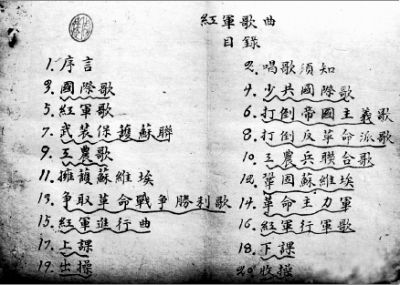 紅軍歌曲
目錄
1. 序言
2. 唱歌須知
3. 國際歌
4. 少共國際歌
5. 紅軍歌
6. 打倒帝國主義歌
7. 武裝保護蘇聯
8. 打倒反革命派歌
9. 工農歌
10. 工農兵聯合歌
11. 擁護蘇維埃
12. 鞏固蘇維埃
13. 爭取革命戰爭勝利歌
14. 革命主力軍
15. 紅軍進行曲
16. 紅軍行軍歌
17. 上課
18. 下課
19. 出操
20. 收操